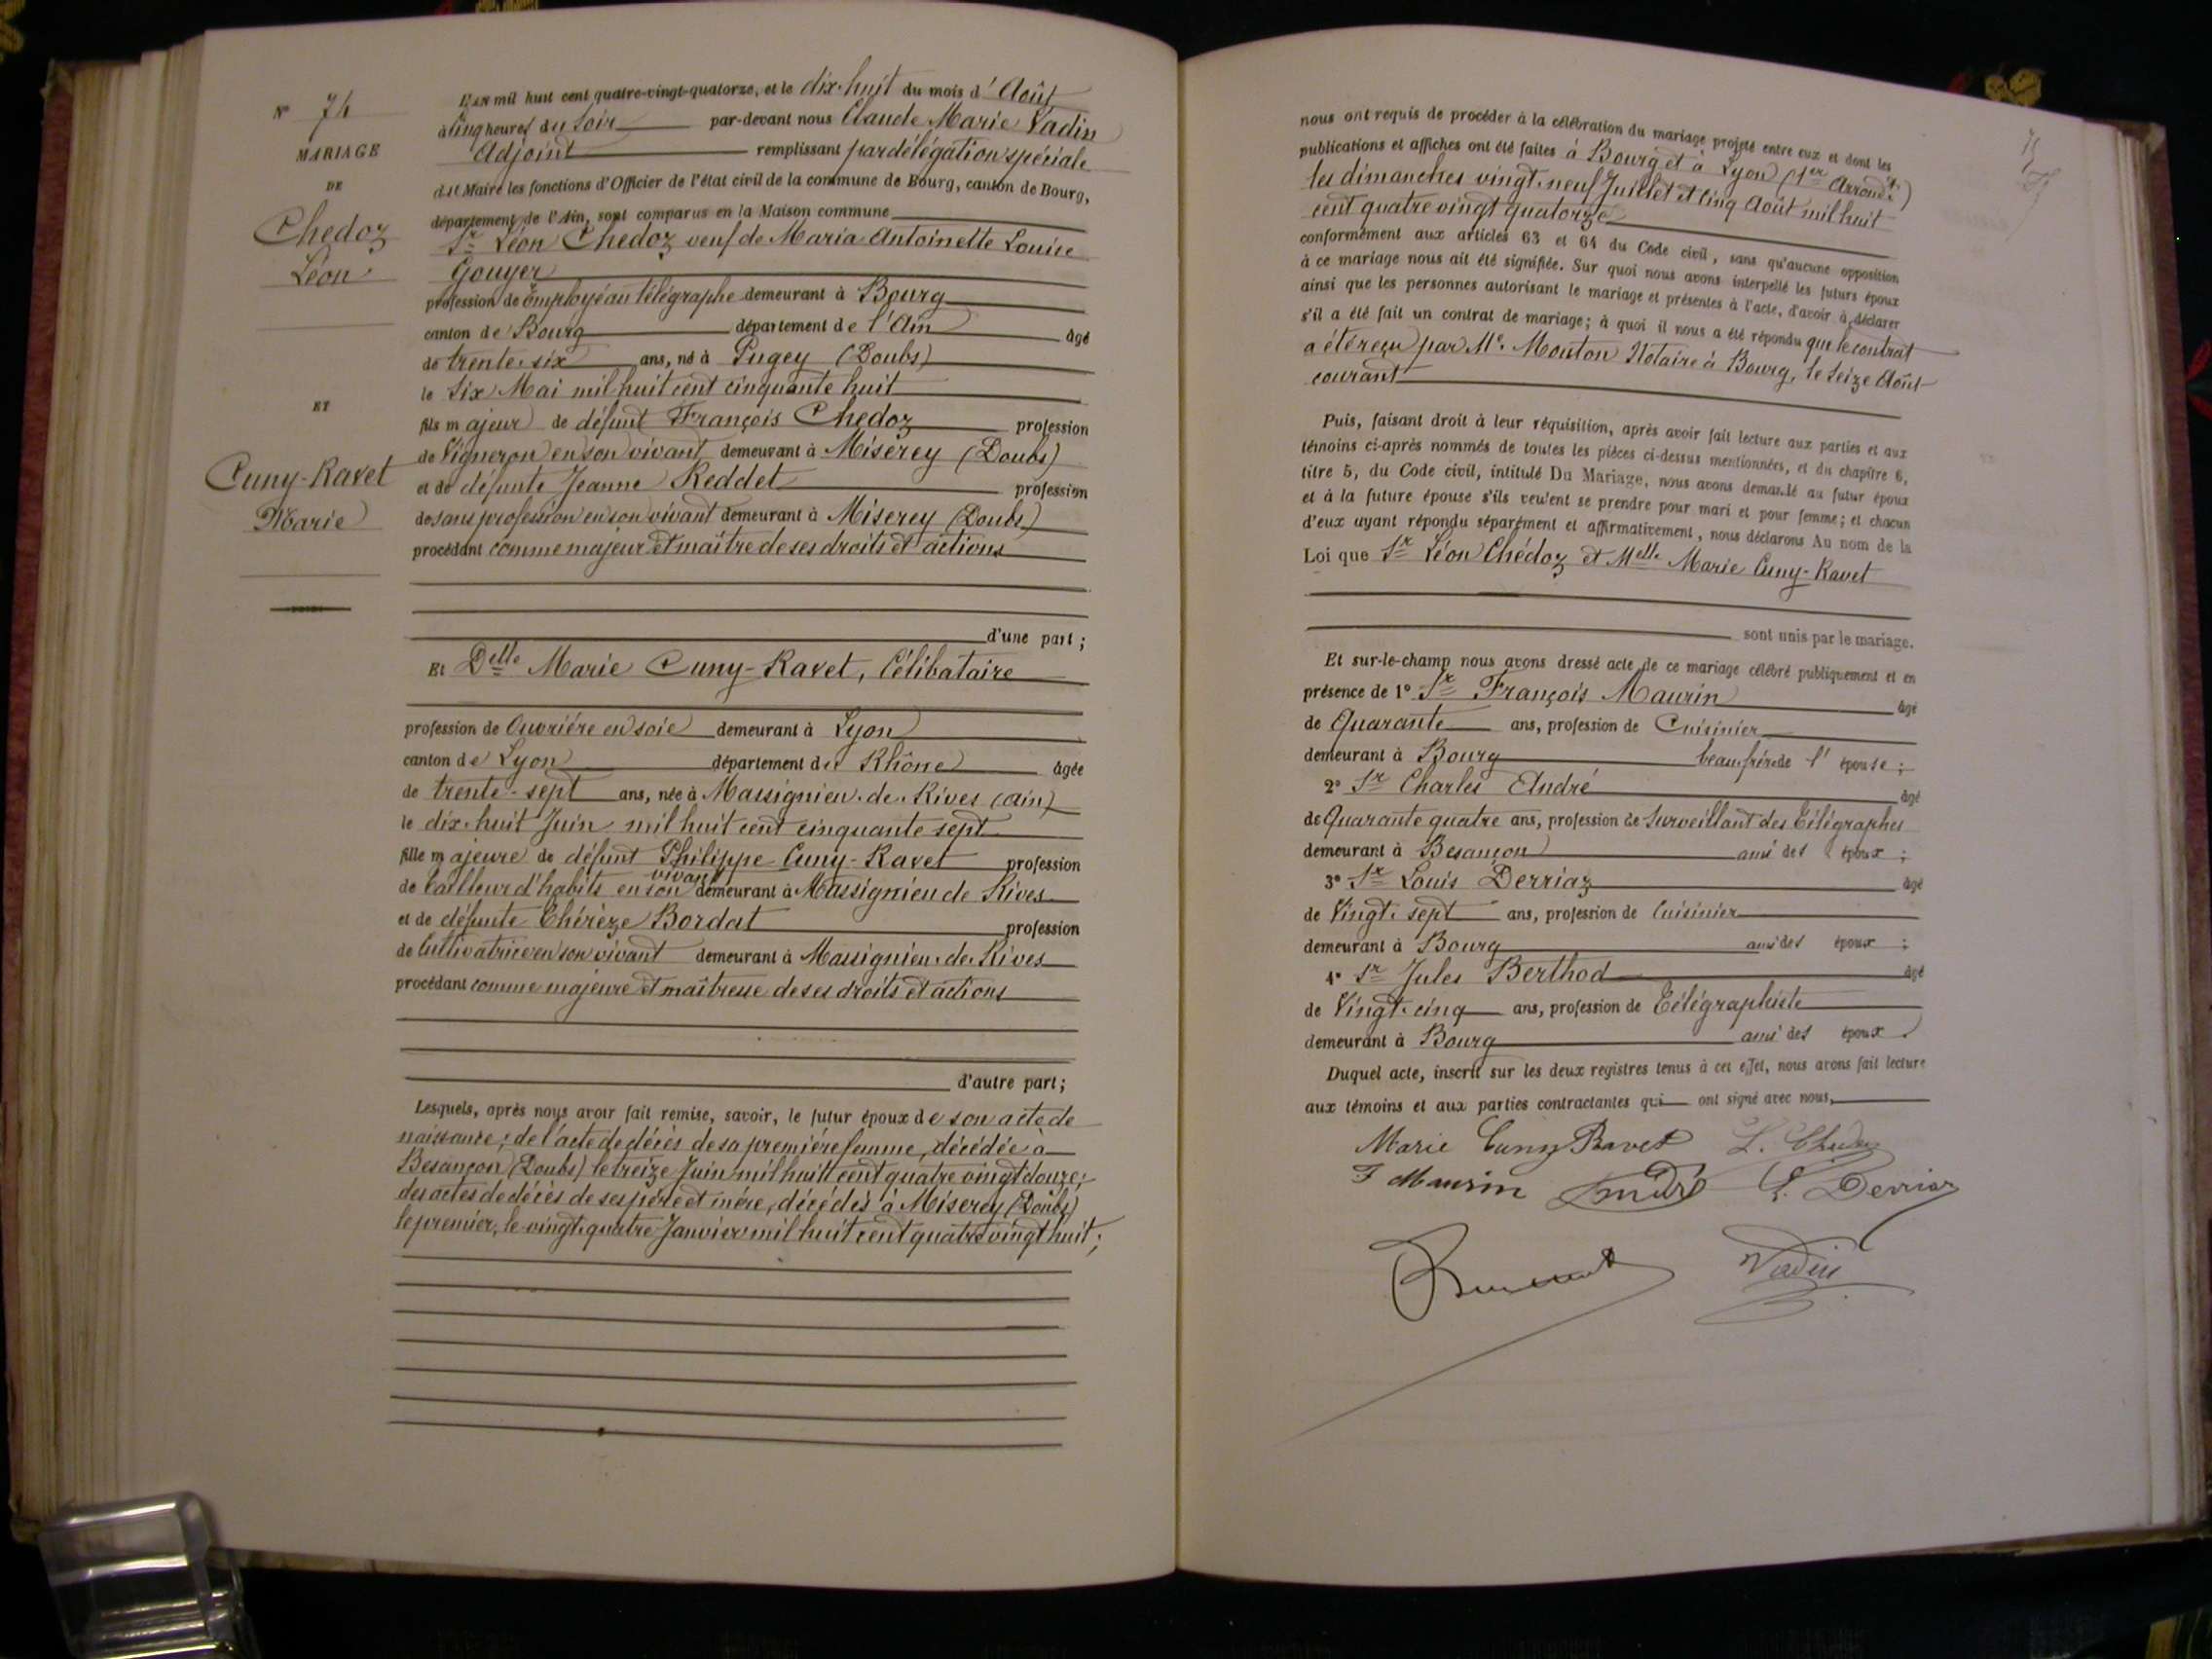 N° 74
MARIAGE
DE
Chedoz
Léon
ET
Cuny-Ravet
Marie
L'AN mil huit cent quatre-vingt-quatorze, et le dix-huit du mois d'Août
à cinq heures du soir par-devant nous Claude Marie Vadin
Adjoint remplissant par délégation spéciale
du Maire les fonctions d'Officier de l'état civil de la commune de Bourg, canton de Bourg,
département de l'Ain, sont comparus en la Maison commune
Sr Léon Chedoz veuf de Maria Antoinette Louise
Gouyer
profession de Employé au télégraphe demeurant à Bourg
canton de Bourg département de l'Ain âgé
de trente-six ans, né à Pugey (Doubs)
le Six Mai mil huit cent cinquante huit
fils majeur de défunt François Chedoz profession
de Vigneron en son vivant demeurant à Miserey (Doubs)
et de défunte Jeanne Reddet profession
de sans profession en son vivant demeurant à Miserey (Doubs)
procédant comme majeur et maître de ses droits et actions
d'une part ;
Et Delle Marie Cuny-Ravet, Célibataire
profession de Ouvrière en soie demeurant à Lyon
canton de Lyon département du Rhône âgée
de trente-sept ans, née à Massignieu-de-Rives (Ain)
le dix-huit Juin mil huit cent cinquante sept
fille majeure de défunt Philippe Cuny-Ravet profession
de Tailleur d'habits en son vivant demeurant à Massignieu de Rives
et de défunte Thérèze Bordat profession
de Cultivatrice en son vivant demeurant à Massignieu-de-Rives
procédant comme majeure et maîtresse de ses droits et actions
d'autre part ;
Lesquels, après nous avoir fait remise, savoir, le futur époux de son acte de
naissance ; de l'acte de décès de sa première femme, décédée à
Besançon (Doubs) le treize Juin mil huit cent quatre vingt douze ;
des actes de décès de ses père et mère, décédés à Miserey (Doubs)
le premier, le vingt-quatre Janvier mil huit cent quatre vingt huit ;
nous ont requis de procéder à la célébration du mariage projeté entre eux et dont les
publications et affiches ont été faites à Bourg et à Lyon (1er Arrondt.)
les dimanches vingt-neuf Juillet et cinq Août mil huit
cent quatre vingt quatorze
conformément aux articles 63 et 64 du Code civil, sans qu'aucune opposition
à ce mariage nous ait été signifiée. Sur quoi nous avons interpellé les futurs époux
ainsi que les personnes autorisant le mariage et présentes à l'acte, d'avoir à déclarer
s'il a été fait un contrat de mariage ; à quoi il nous a été répondu que le contrat
a été reçu par Me. Mouton Notaire à Bourg, le seize Août
courant
Puis, faisant droit à leur réquisition, après avoir fait lecture aux parties et aux
témoins ci-après nommés de toutes les pièces ci-dessus mentionnées, et du chapitre 6,
titre 5, du Code civil, intitulé Du Mariage, nous avons demandé au futur époux
et à la future épouse s'ils veulent se prendre pour mari et pour femme ; et chacun
d'eux ayant répondu séparément et affirmativement, nous déclarons Au nom de la
Loi que Sr Léon Chédoz et Melle Marie Cuny-Ravet
sont unis par le mariage.
Et sur-le-champ nous avons dressé acte de ce mariage célébré publiquement et en
présence de 1° Sr François Maurin âgé
de Quarante ans, profession de Cuisinier
demeurant à Bourg beau-frère de l'épouse ;
2° Sr Charles André âgé
de Quarante quatre ans, profession de Surveillant des Télégraphes
demeurant à Besançon ami des époux ;
3° Sr Louis Derriaz âgé
de Vingt-sept ans, profession de Cuisinier
demeurant à Bourg ami des époux ;
4° Sr Jules Berthod âgé
de Vingt-cinq ans, profession de Télégraphiste
demeurant à Bourg ami des époux
Duquel acte, inscrit sur les deux registres tenus à cet effet, nous avons fait lecture
aux témoins et aux parties contractantes qui ont signé avec nous,
Marie Cuny Ravet L. Chedoz
F Maurin André L. Derriaz
Vadin